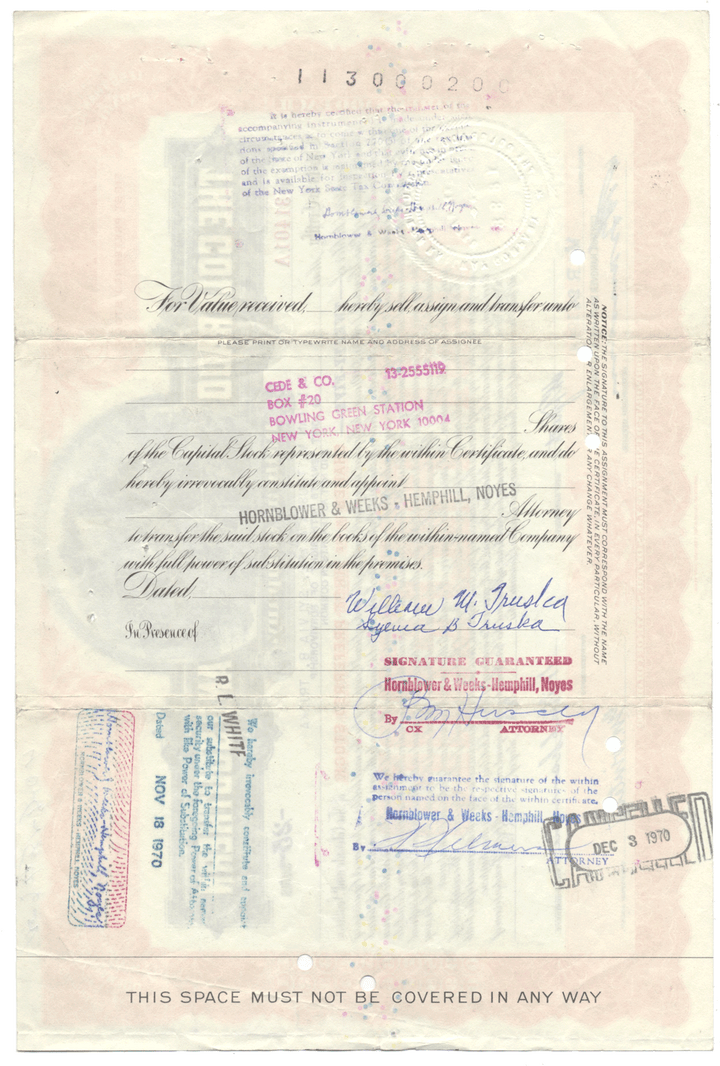 113000200
It is hereby certified that the
accompanying instrument
of the State of New York
of the exemption is
and is available for
of the New York State Tax
Hornblower & Weeks-Hemphill
For Value received, hereby sell, assign and transfer unto
PLEASE PRINT OR TYPEWRITE NAME AND ADDRESS OF ASSIGNEE
CEDE & CO. 13-2555119
BOX #20
BOWLING GREEN STATION
NEW YORK, NEW YORK 10004
Shares
of the Capital Stock represented by the within Certificate, and do
hereby irrevocably constitute and appoint
HORNBLOWER & WEEKS - HEMPHILL, NOYES
Attorney
to transfer the said stock on the books of the within-named Company
with full power of substitution in the premises.
Dated,
In Presence of
William M. Truska
B Truska
SIGNATURE GUARANTEED
Hornblower & Weeks-Hemphill, Noyes
By
CX ATTORNEY
We hereby guarantee the signature of the within
assignment to be the respective signature of the
person named on the face of the within certificate.
Hornblower & Weeks - Hemphill, Noyes
By
ATTORNEY
CANCELLED
DEC 3 1970
NOTICE: THE SIGNATURE TO THIS ASSIGNMENT MUST CORRESPOND WITH THE NAME
AS WRITTEN UPON THE FACE OF THE CERTIFICATE, IN EVERY PARTICULAR, WITHOUT
ALTERATION OR ENLARGEMENT, OR ANY CHANGE WHATEVER.
We hereby irrevocably constitute and appoint
R. L. WHITE
our substitute to transfer the within
security under the foregoing Power of Attorney
with like Power of Substitution.
Dated NOV 18 1970
HORNBLOWER & WEEKS-HEMPHILL, NOYES
THIS SPACE MUST NOT BE COVERED IN ANY WAY